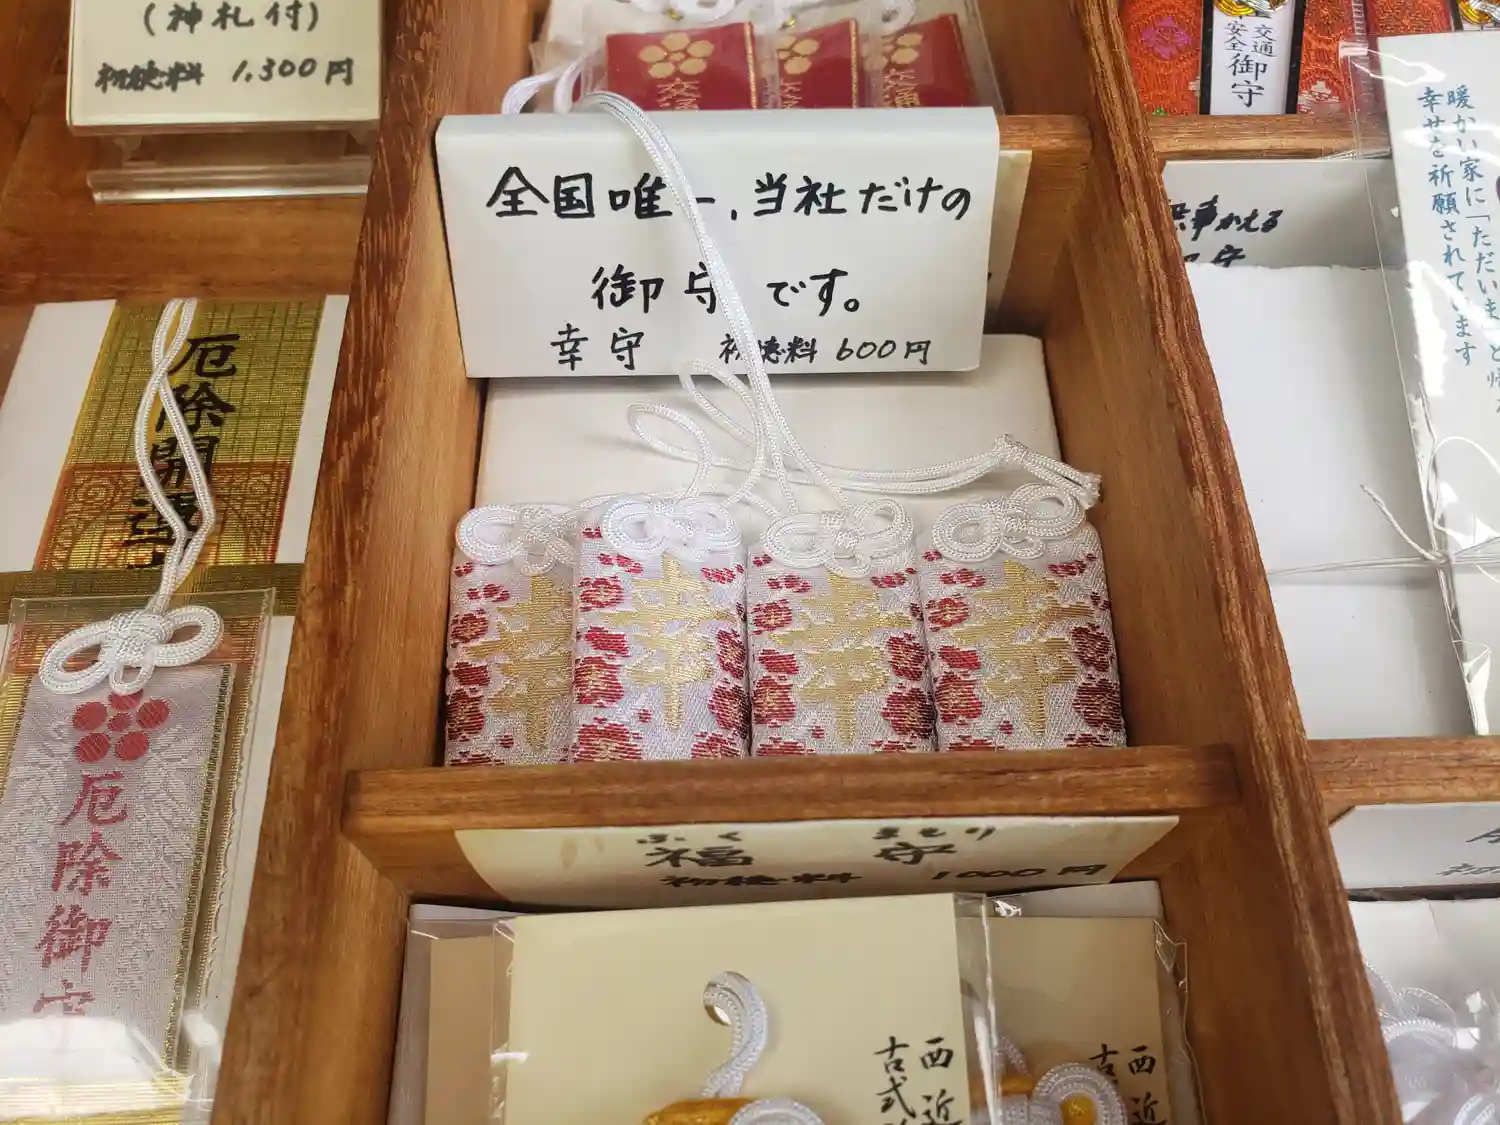 (神札付)
初穂料 1,300円
交通
交通
安全
御守
暖かい家に「ただいま」と帰
幸せを祈願されています
全国唯一、当社だけの
御守です。
幸守 初穂料 600円
無事かえる
守
厄除開運
厄除御守
幸
幸
幸
幸
ふく まもり
福守
初穂料 1000円
西近
古式
西近
古